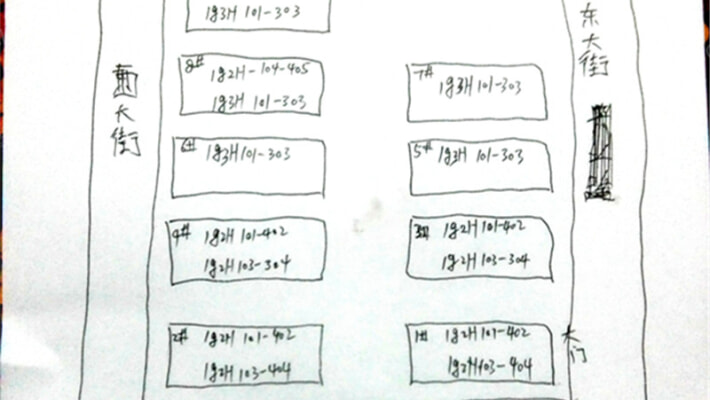 1g3H 101-303
东大街
西大街
8# 1g2H-104-405
1g3H 101-303
7# 1g3H 101-303
6# 1g3H 101-303
5# 1g3H 101-303
4# 1g2H 101-402
1g2H 103-304
3# 1g2H 101-402
1g2H 103-304
2# 1g2H 101-402
1g2H 103-404
1# 1g2H 101-402
1g2H 103-404
大门